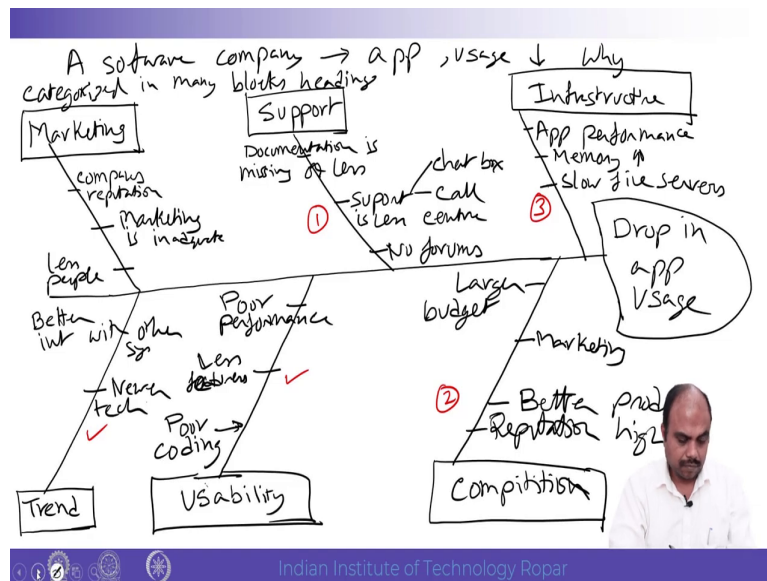 A software company → app , usage ↓ Why
categorized in many blocks headings
Marketing
Support
Infrastructure
company
reputation
Marketing
is inadequate
Less
people
Documentation is
missing or less
Suport
is less
chat box
call
centre
No forums
①
App performance
Memory ↑
Slow file servers
③
Drop in
app
usage
Better
int with other
sys
Newer
tech
Poor
performance
Less
features
Poor
coding
Larger
budget
Marketing
②
Better prod
Reputation high
Trend
Usability
Compitition
Indian Institute of Technology Ropar